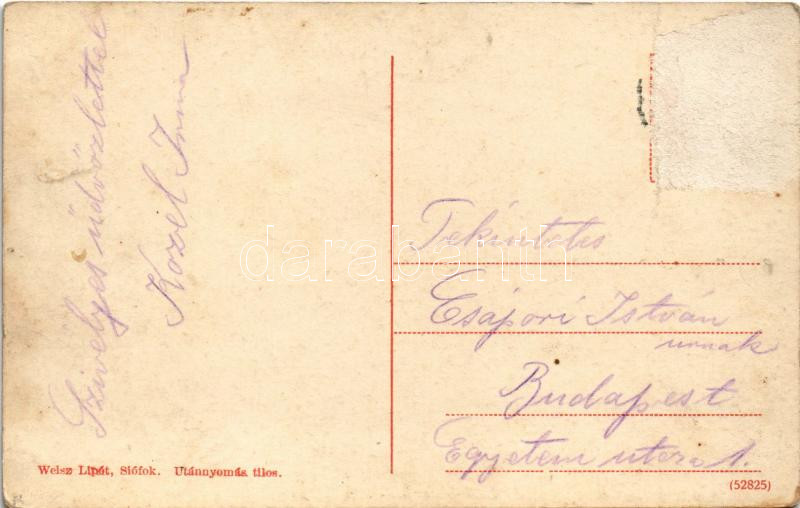 Szivelyes üdvözlettel
Kozel Irma
Tekintetes
Csápori István
urnak
Budapest
Egyetem utcza 1.
Weisz Lipót, Siófok. Utánnyomás tilos.
(52825)
darabanth